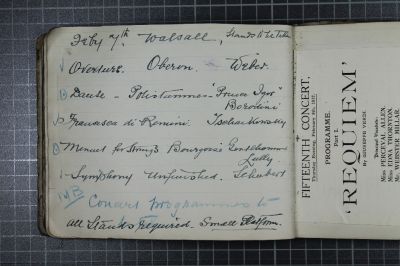 Feby 7th Walsall, Stands to be taken
Overture. Oberon. Weber.
Danse - Polovtsiennes "Prince Igor"
Borodini
Francesca di Rimini. Tschaikowsky
Menuet for Strings Bourgeois Gentilhomme
Lully
Symphony Unfinished. Schubert
NB Concert programmes to
all Stands required. Small Platform.
FIFTEENTH CONCERT.
Thursday Evening, February 8th, 1917.
PROGRAMME.
Part I.
'REQUIEM'
By GIUSEPPE VERDI.
Miss PERCEVAL ALLEN.
Miss EDNA THORNTON.
Mr. WEBSTER MILLAR.